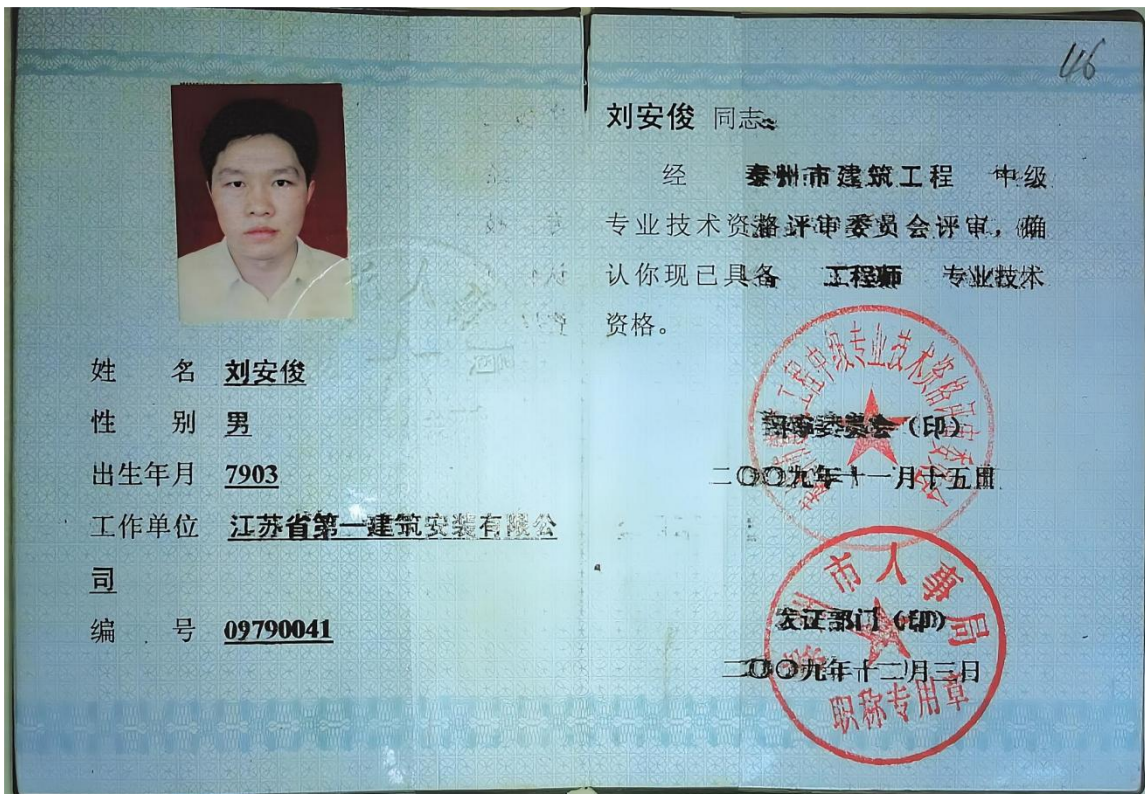 姓 名 刘安俊
性 别 男
出生年月 7903
工作单位 江苏省第一建筑安装有限公
司
编 号 09790041
46
刘安俊 同志
经 泰州市建筑工程 中级
专业技术资格评审委员会评审，确
认你现已具备 工程师 专业技术
资格。
工程中级专业技术资格评审委员会
评审委员会（印）
二〇〇九年十一月十五日
泰州市人事局
发证部门（印）
二〇〇九年十二月三日
职称专用章